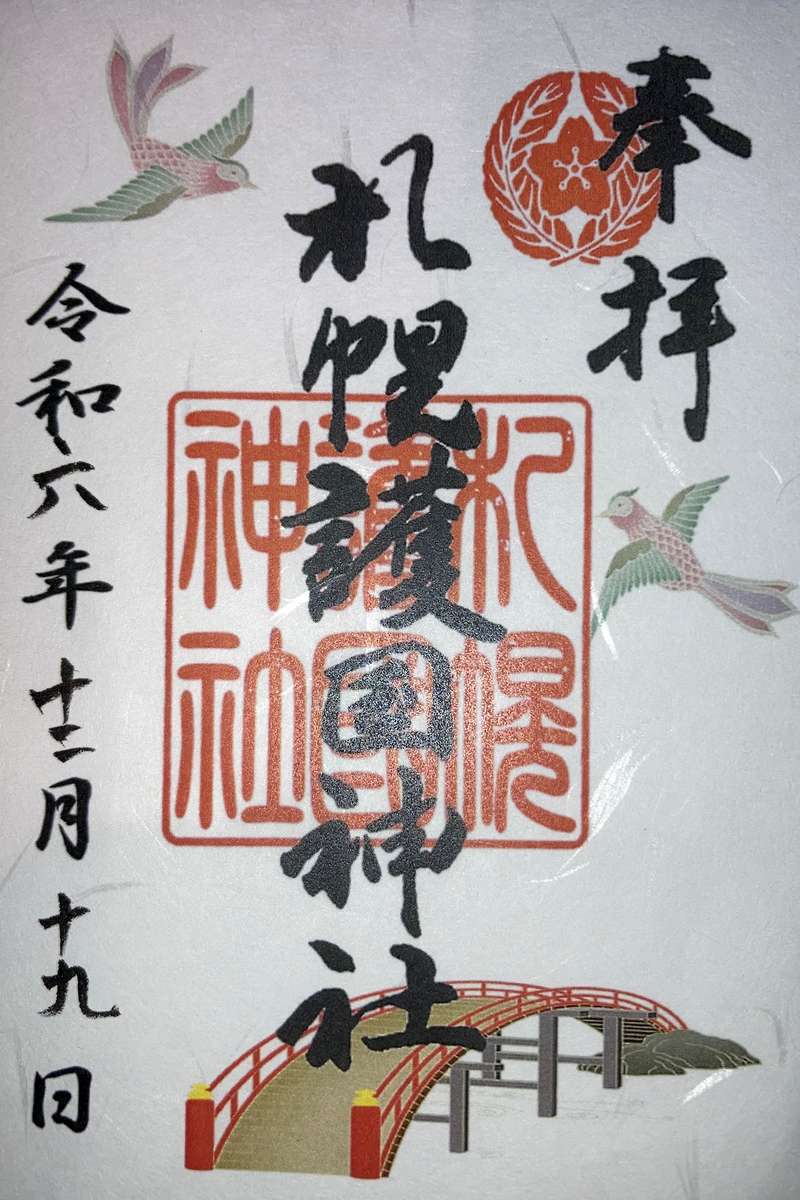 奉拝
札幌護国神社
札幌
護國
神社
令和六年十二月十九日